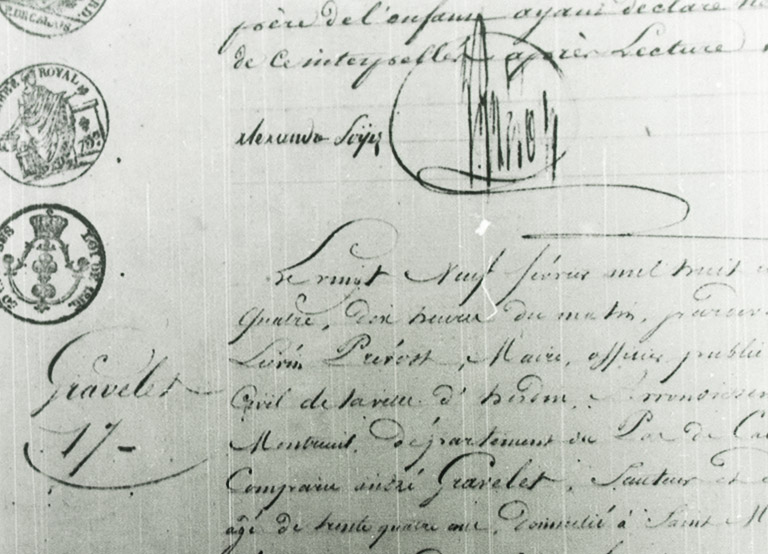 P. DE CALAIS
ROYAL
père de l'enfant ayant déclaré ne
de ce interpellés après Lecture
Alexandre
Gravelet
17-
Le vingt Neuf février mil huit
quatre, dix heures du matin, pardevant
Prévost, Maire, officier public
Civil de la ville d'hesdin, Arrondissement
Montreuil, département du Pas de Ca
Comparu andré Gravelet, Sauteur et
âgé de trente quatre ans, domicilié à Saint M